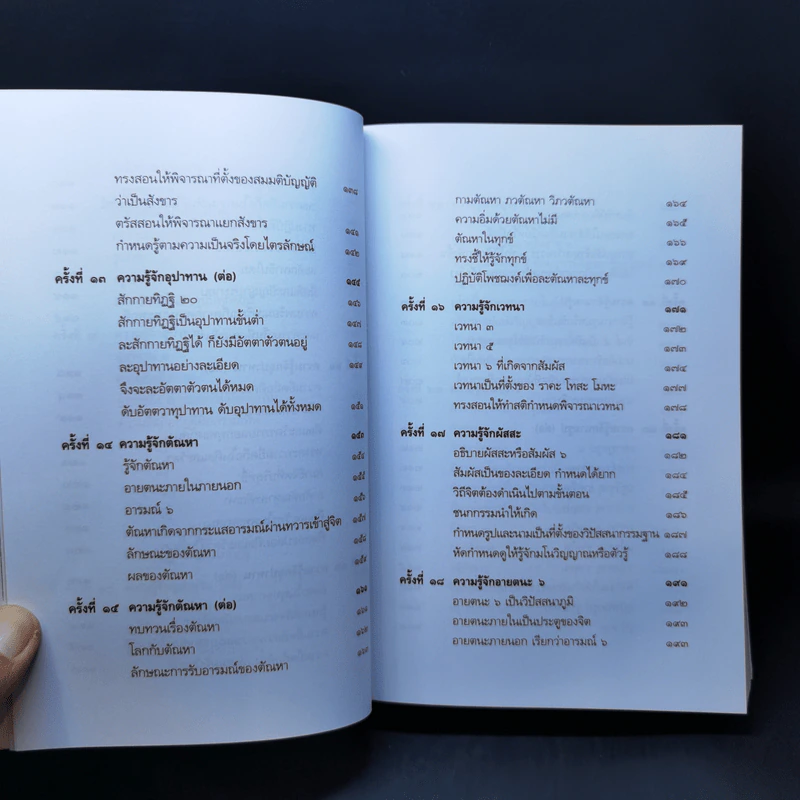 ทรงสอนให้พิจารณาที่ตั้งของสมมติบัญญัติ
ว่าเป็นสังขาร ๑๓๘
ตรัสสอนให้พิจารณาแยกสังขาร ๑๔๑
กำหนดรู้ตามความเป็นจริงโดยไตรลักษณ์ ๑๔๒
ครั้งที่ ๑๓ ความรู้จักอุปาทาน (ต่อ) ๑๔๕
สักกายทิฏฐิ ๒๐ ๑๔๖
สักกายทิฏฐิเป็นอุปาทานขั้นต่ำ ๑๔๗
ละสักกายทิฏฐิได้ ก็ยังมีอัตตาตัวตนอยู่ ๑๔๘
ละอุปาทานอย่างละเอียด ๑๔๙
จึงจะละอัตตาตัวตนได้หมด
ดับอัตตวาทุปาทาน ดับอุปาทานได้ทั้งหมด ๑๕๑
ครั้งที่ ๑๔ ความรู้จักตัณหา ๑๕๓
รู้จักตัณหา ๑๕๔
อายตนะภายในภายนอก ๑๕๕
อารมณ์ ๖ ๑๕๖
ตัณหาเกิดจากกระแสอารมณ์ผ่านทวารเข้าสู่จิต ๑๕๗
ลักษณะของตัณหา ๑๕๘
ผลของตัณหา ๑๕๙
ครั้งที่ ๑๕ ความรู้จักตัณหา (ต่อ) ๑๖๑
ทบทวนเรื่องตัณหา ๑๖๑
โลกกับตัณหา ๑๖๒
ลักษณะการรับอารมณ์ของตัณหา ๑๖๓
กามตัณหา ภวตัณหา วิภวตัณหา ๑๖๔
ความอิ่มด้วยตัณหาไม่มี ๑๖๕
ตัณหาในทุกข์ ๑๖๖
ทรงชี้ให้รู้จักทุกข์ ๑๖๙
ปฏิบัติโพชฌงค์เพื่อละตัณหาละทุกข์ ๑๗๐
ครั้งที่ ๑๖ ความรู้จักเวทนา ๑๗๑
เวทนา ๓ ๑๗๒
เวทนา ๕ ๑๗๓
เวทนา ๖ ที่เกิดจากสัมผัส ๑๗๔
เวทนาเป็นที่ตั้งของ ราคะ โทสะ โมหะ ๑๗๗
ทรงสอนให้ทำสติกำหนดพิจารณาเวทนา ๑๗๘
ครั้งที่ ๑๗ ความรู้จักผัสสะ ๑๘๑
อธิบายผัสสะหรือสัมผัส ๖ ๑๘๒
สัมผัสเป็นของละเอียด กำหนดได้ยาก ๑๘๔
วิถีจิตต้องดำเนินไปตามขั้นตอน ๑๘๕
ชนกกรรมนำให้เกิด ๑๘๖
กำหนดรูปและนามเป็นที่ตั้งของวิปัสสนากรรมฐาน ๑๘๗
หัดกำหนดดูให้รู้จักมโนวิญญาณหรือตัวรู้ ๑๘๘
ครั้งที่ ๑๘ ความรู้จักอายตนะ ๖ ๑๙๑
อายตนะ ๖ เป็นวิปัสสนาภูมิ ๑๙๒
อายตนะภายในเป็นประตูของจิต ๑๙๓
อายตนะภายนอก เรียกว่าอารมณ์ ๖ ๑๙๓